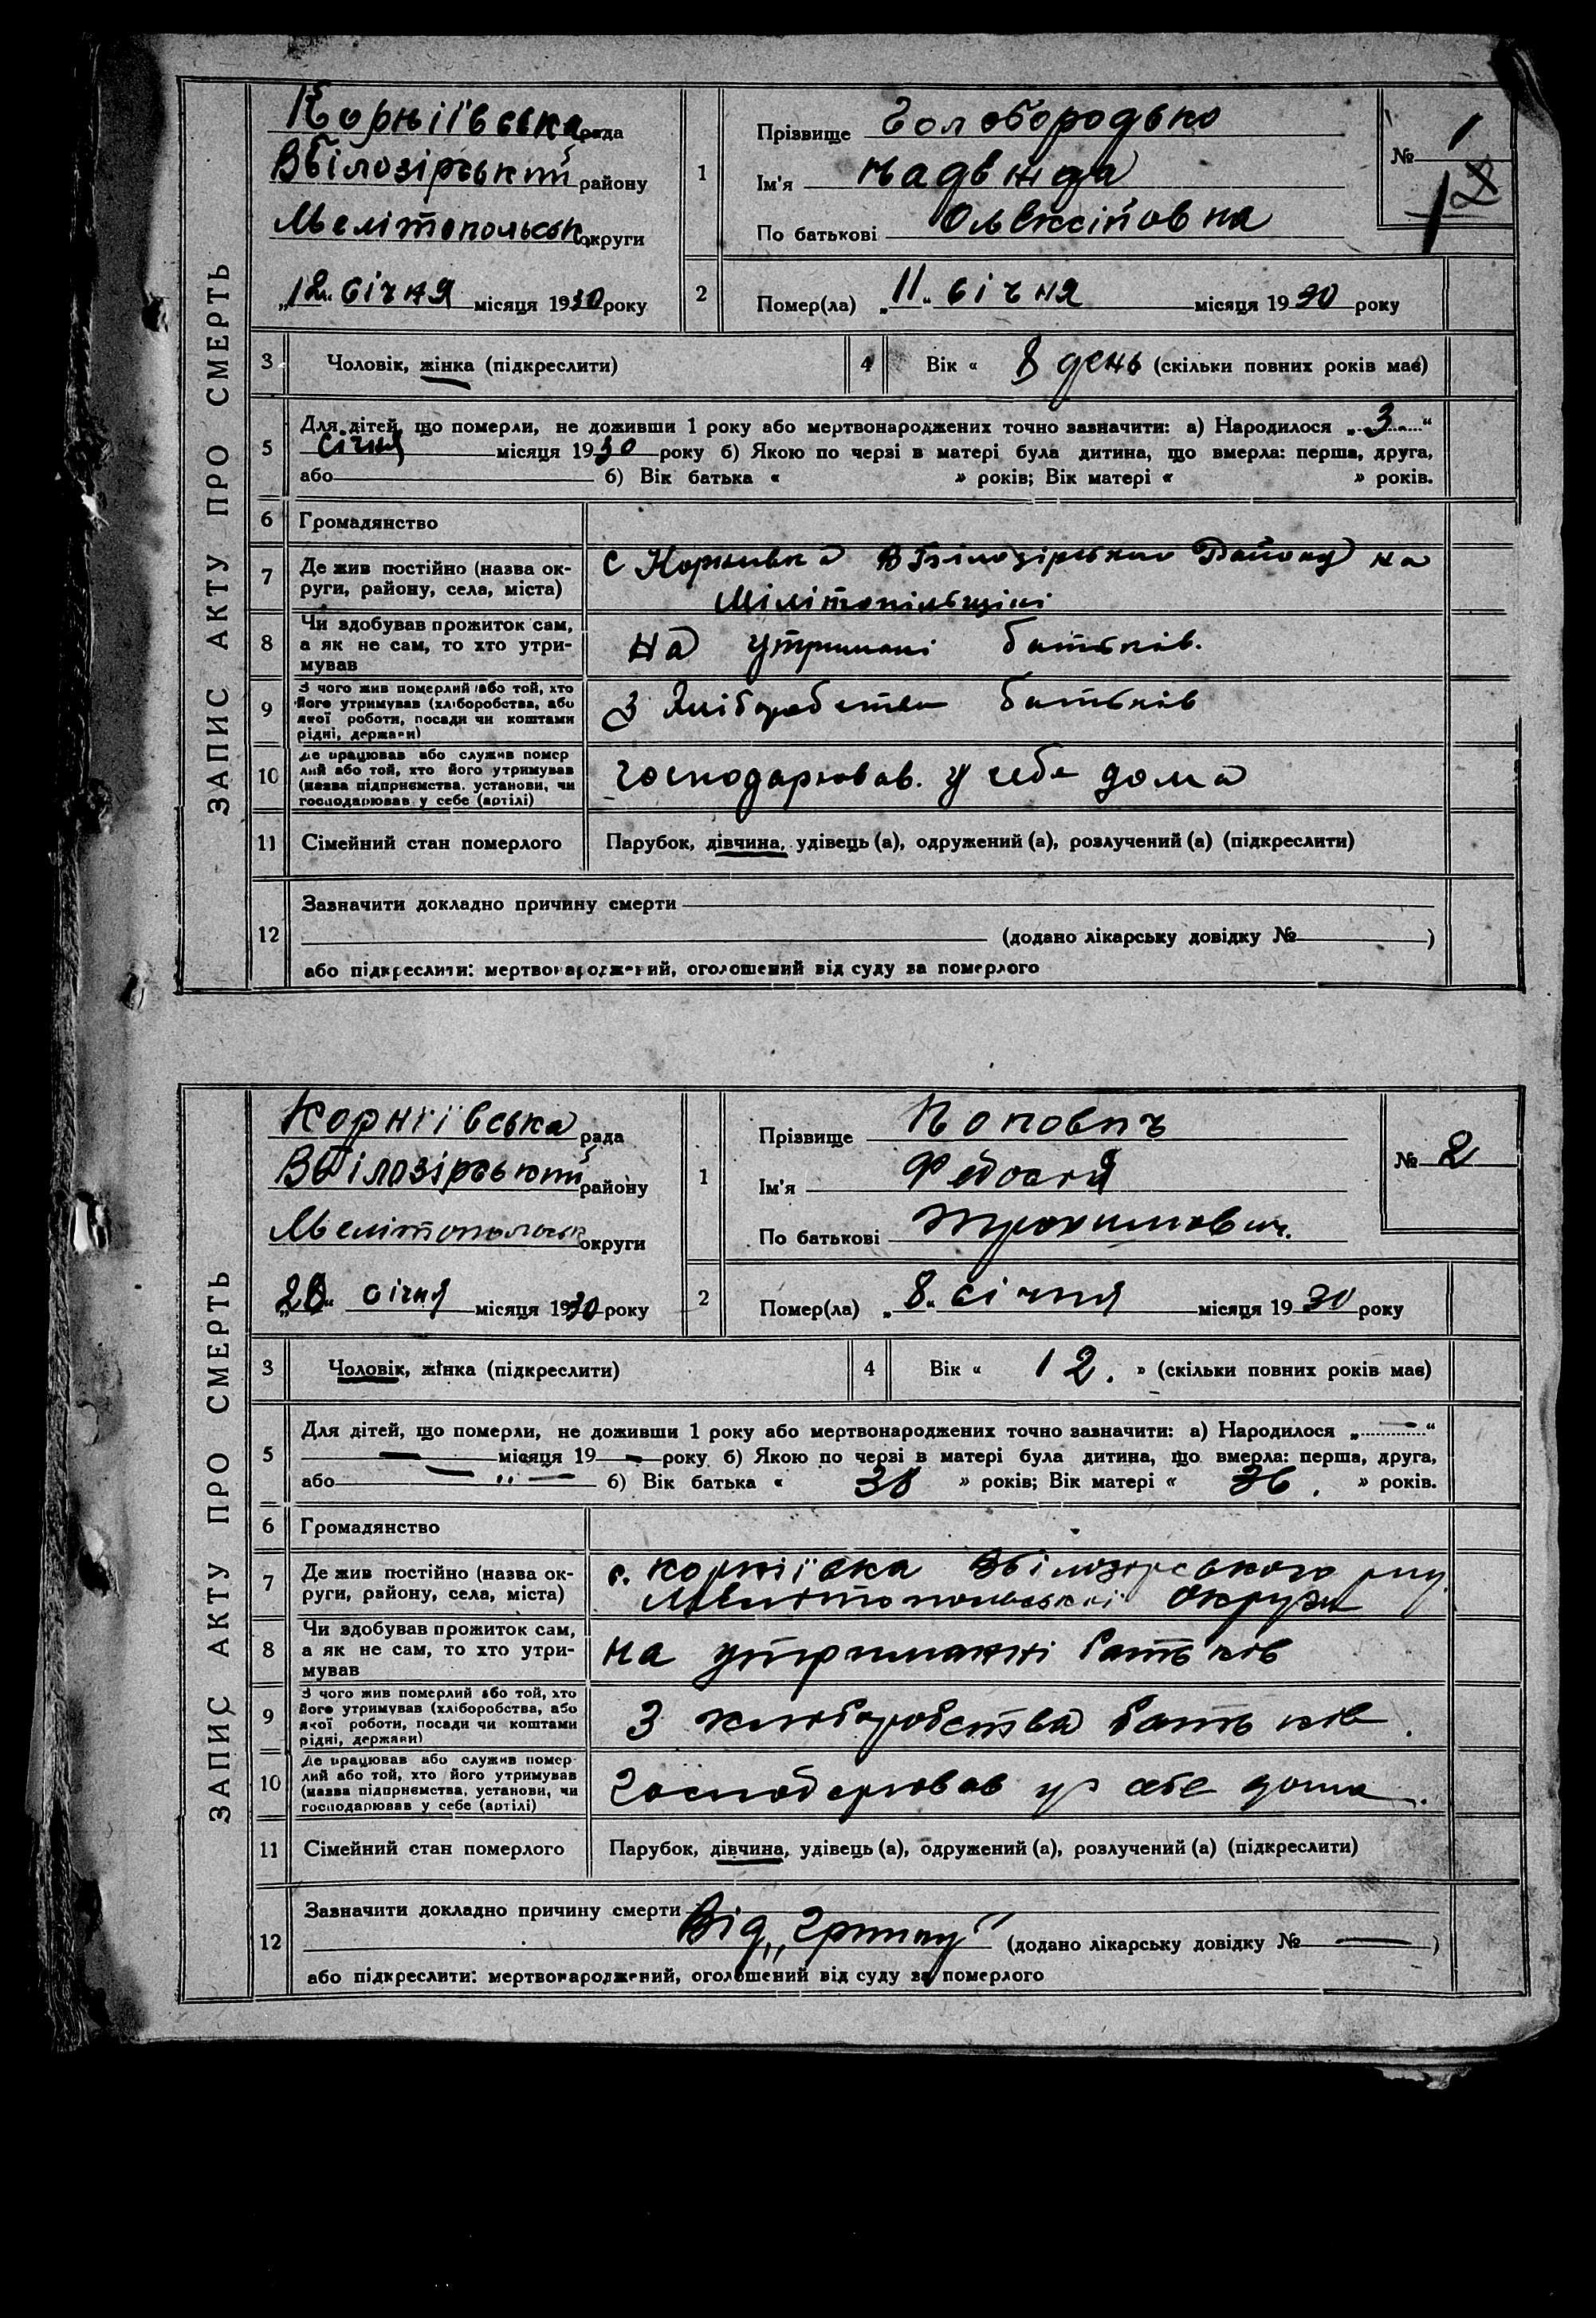 ЗАПИС АКТУ ПРО СМЕРТЬ
Корніївська рада
ВБілозірський району
Мелітопольськ округи
„12„ січня місяця 1930 року
1
Прізвище Голобородько
Ім'я Надежда
По батькові Олексіювна
№ 1
2
Помер(ла) „11„ січня місяця 1930 року
3 Чоловік, жінка (підкреслити)
4 Вік « 8 день (скільки повних років має)
5 Для дітей, що померли, не доживши 1 року або мертвонароджених точно зазначити: а) Народилося „3“
січня місяця 1930 року б) Якою по черзі в матері була дитина, що вмерла: перша, друга,
або б) Вік батька « » років; Вік матері « » років.
6 Громадянство
7 Де жив постійно (назва ок-
руги, району, села, міста)
с Корнивка ВБілозірського Району на
Мілітопільщіні
8 Чи здобував прожиток сам,
а як не сам, то хто утри-
мував
на утримані батьків.
9 З чого жив померлий або той, хто
його утримував (хліборобства, або
якої роботи, посади чи коштами
рідні, держави)
З Хліборобства батьків
10 Де працював або служив помер
лий або той, хто його утримував
(назва підприємства, установи, чи
господарював у себе (артілі)
Господарював. у себе дома
11 Сімейний стан померлого Парубок, дівчина, удівець (а), одружений (а), розлучений (а) (підкреслити)
12 Зазначити докладно причину смерти
(додано лікарську довідку № )
або підкреслити: мертвонароджений, оголошений від суду за померлого
ЗАПИС АКТУ ПРО СМЕРТЬ
Корніївська рада
ВБілозірський району
Мелітопольськ округи
„20„ січня місяця 1930 року
1
Прізвище Попович
Ім'я Федосій
По батькові Трохимович.
№ 2
2
Помер(ла) „8„ січня місяця 1930 року
3 Чоловік, жінка (підкреслити)
4 Вік « 12. » (скільки повних років має)
5 Для дітей, що померли, не доживши 1 року або мертвонароджених точно зазначити: а) Народилося „—“
— місяця 19 — року б) Якою по черзі в матері була дитина, що вмерла: перша, друга,
або — „ — б) Вік батька « 38 » років; Вік матері « 36. » років.
6 Громадянство
7 Де жив постійно (назва ок-
руги, району, села, міста)
с. Корніївка Вбілозірського р-ну
Мелітопольські Округи
8 Чи здобував прожиток сам,
а як не сам, то хто утри-
мував
на утриманні батьків
9 З чого жив померлий або той, хто
його утримував (хліборобства, або
якої роботи, посади чи коштами
рідні, держави)
З хліборобства батьків.
10 Де працював або служив помер-
лий або той, хто його утримував
(назва підприємства, установи, чи
господарював у себе (артілі)
Господарював у себе дома.
11 Сімейний стан померлого Парубок, дівчина, удівець (а), одружений (а), розлучений (а) (підкреслити)
12 Зазначити докладно причину смерти
Від „Грипу“ (додано лікарську довідку № — )
або підкреслити: мертвонароджений, оголошений від суду за померлого